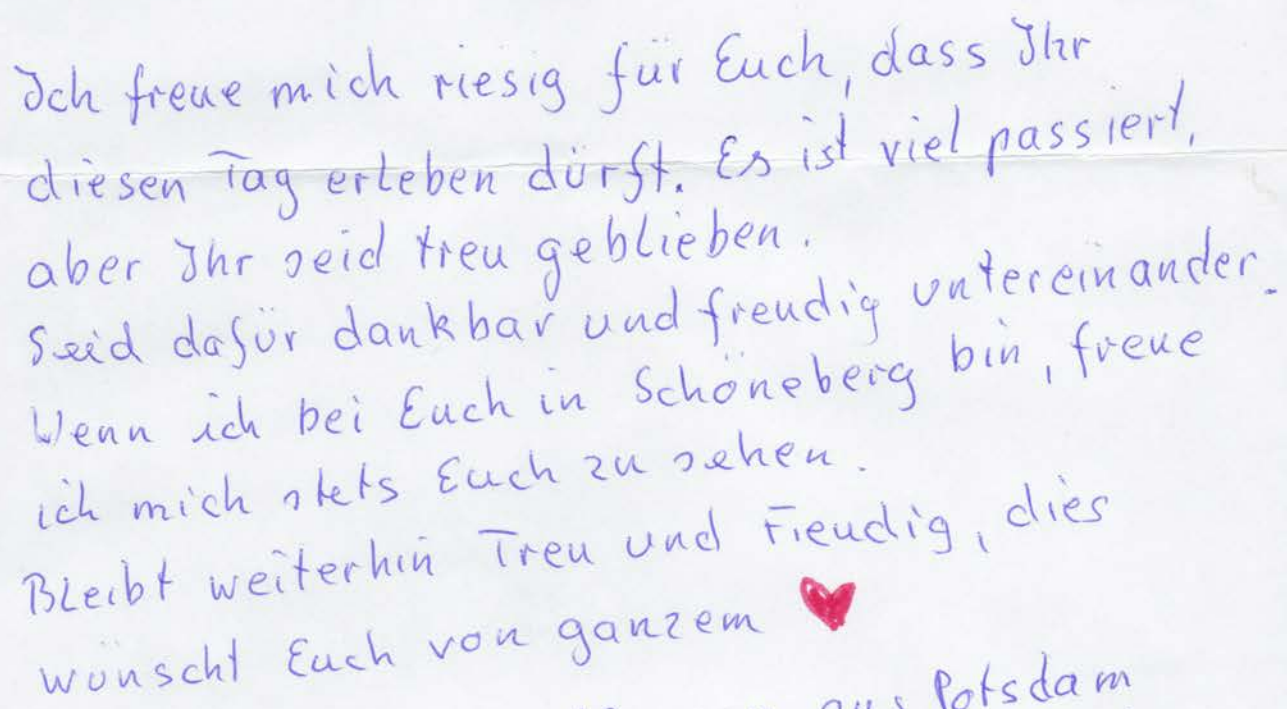 Ich freue mich riesig für Euch, dass Ihr
diesen Tag erleben dürft. Es ist viel passiert,
aber Ihr seid treu geblieben.
Seid dafür dankbar und freudig untereinander.
Wenn ich bei Euch in Schöneberg bin, freue
ich mich stets Euch zu sehen.
Bleibt weiterhin Treu und Freudig, dies
wünscht Euch von ganzem ♥
aus Potsdam